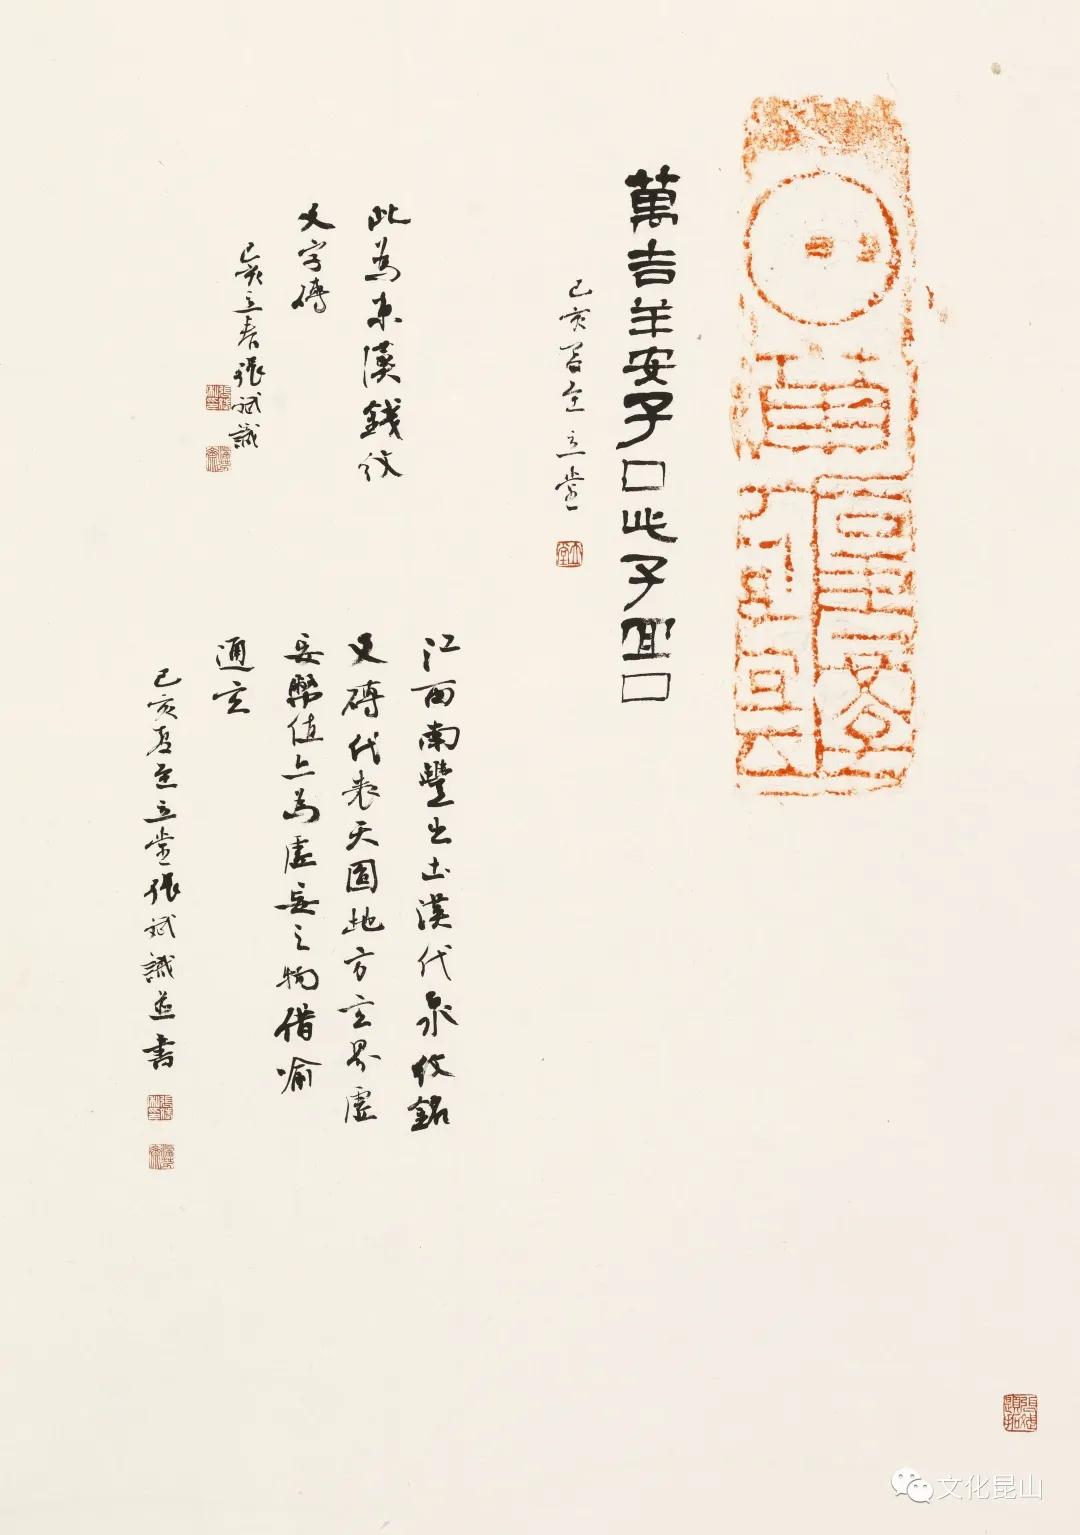 萬吉羊安子□此子宜□
己亥夏至立堂
此為東漢錢紋
文字磚
己亥立春張斌識
江西南豐出土漢代泉紋銘
文磚代表天圓地方玄界虛
妄幣值上為虛妄之物借喻
通玄
己亥夏至立堂張斌識並書
張斌題拓
文化昆山